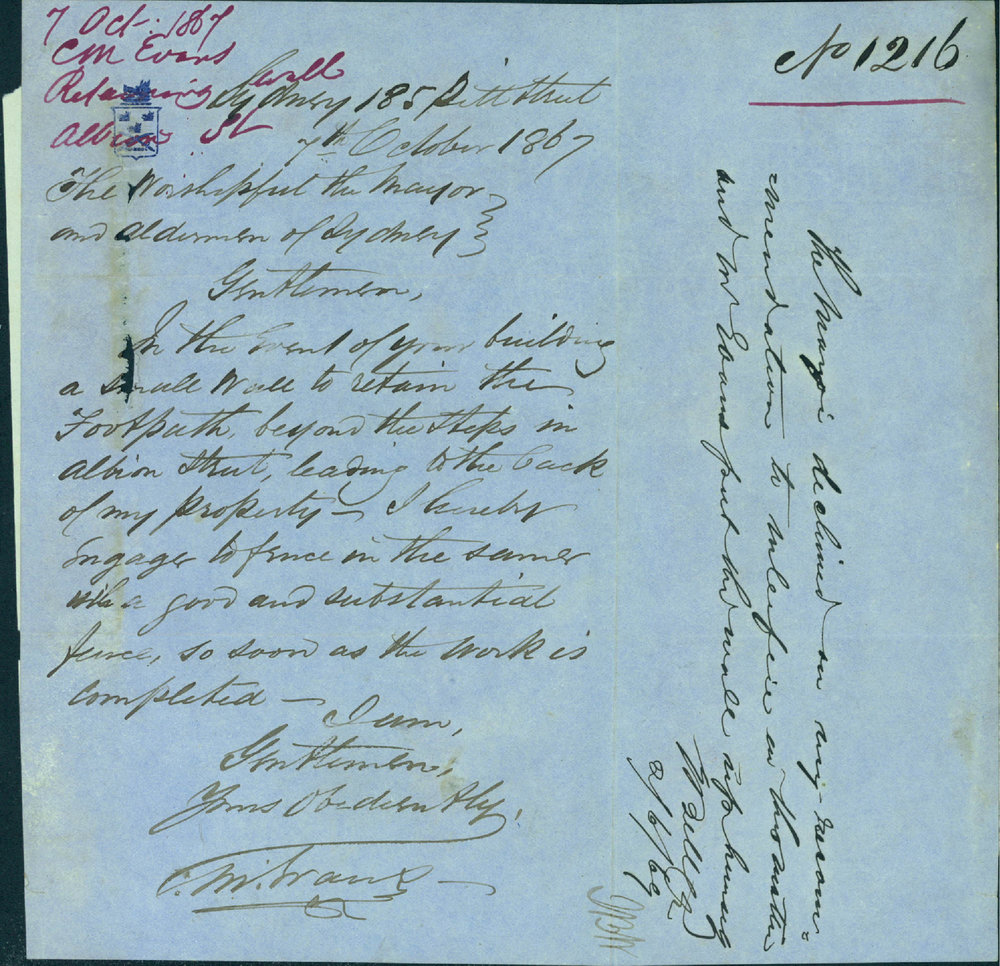 7 Oct: 1867
CM Evans
Retaining wall
Albion St
No 1216
Sydney 185 Pitt Street
7th October 1867
The Worshipful the Mayor
and Aldermen of Sydney
Gentlemen,
In the Event of your building
a small Wall to retain the
Footpath, beyond the Steps in
Albion Street, leading to the back
of my property – I hereby
Engage to fence in the same
with a good and substantial
fence, so soon as the Work is
completed –
I am,
Gentlemen,
Yours Obediently,
C. M. Evans –
The Mayor declined on my recom-
mendation to interfere in this matter
and Mr Evans put the wall up himself
2/6/69